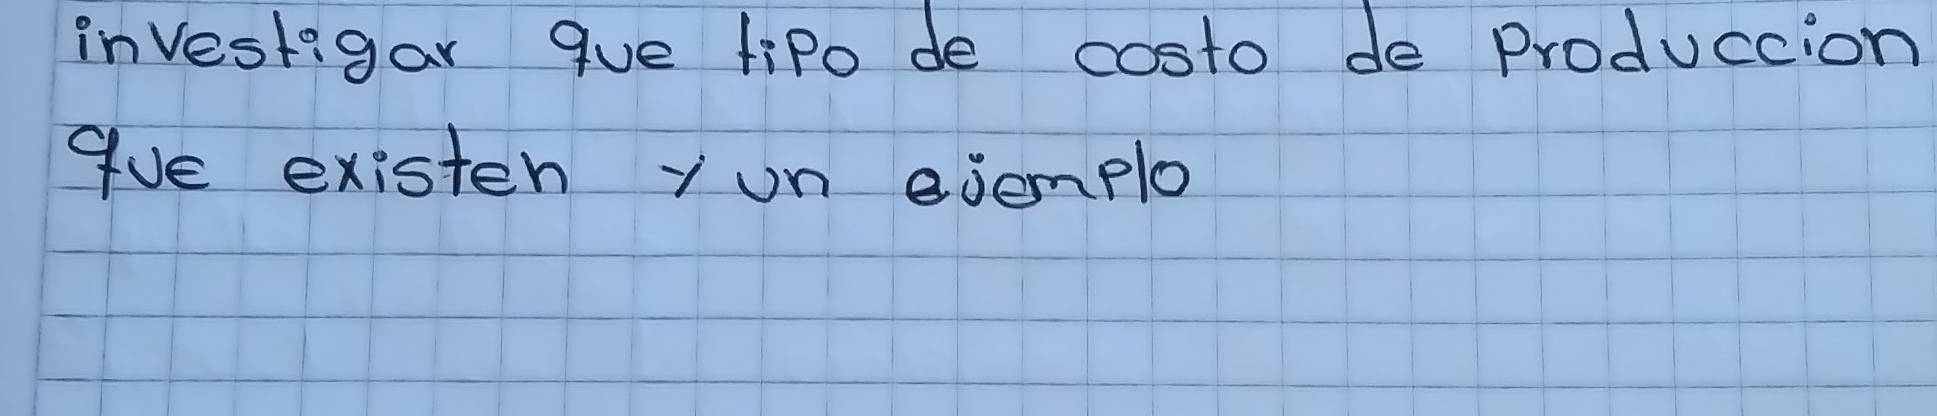 investigar que tipo de costo de Produccion
que existen y un ejemplo